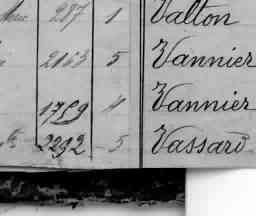 287 1 Valton
2163 5 Vannier
1759 4 Vannier
2292 5 Vassard